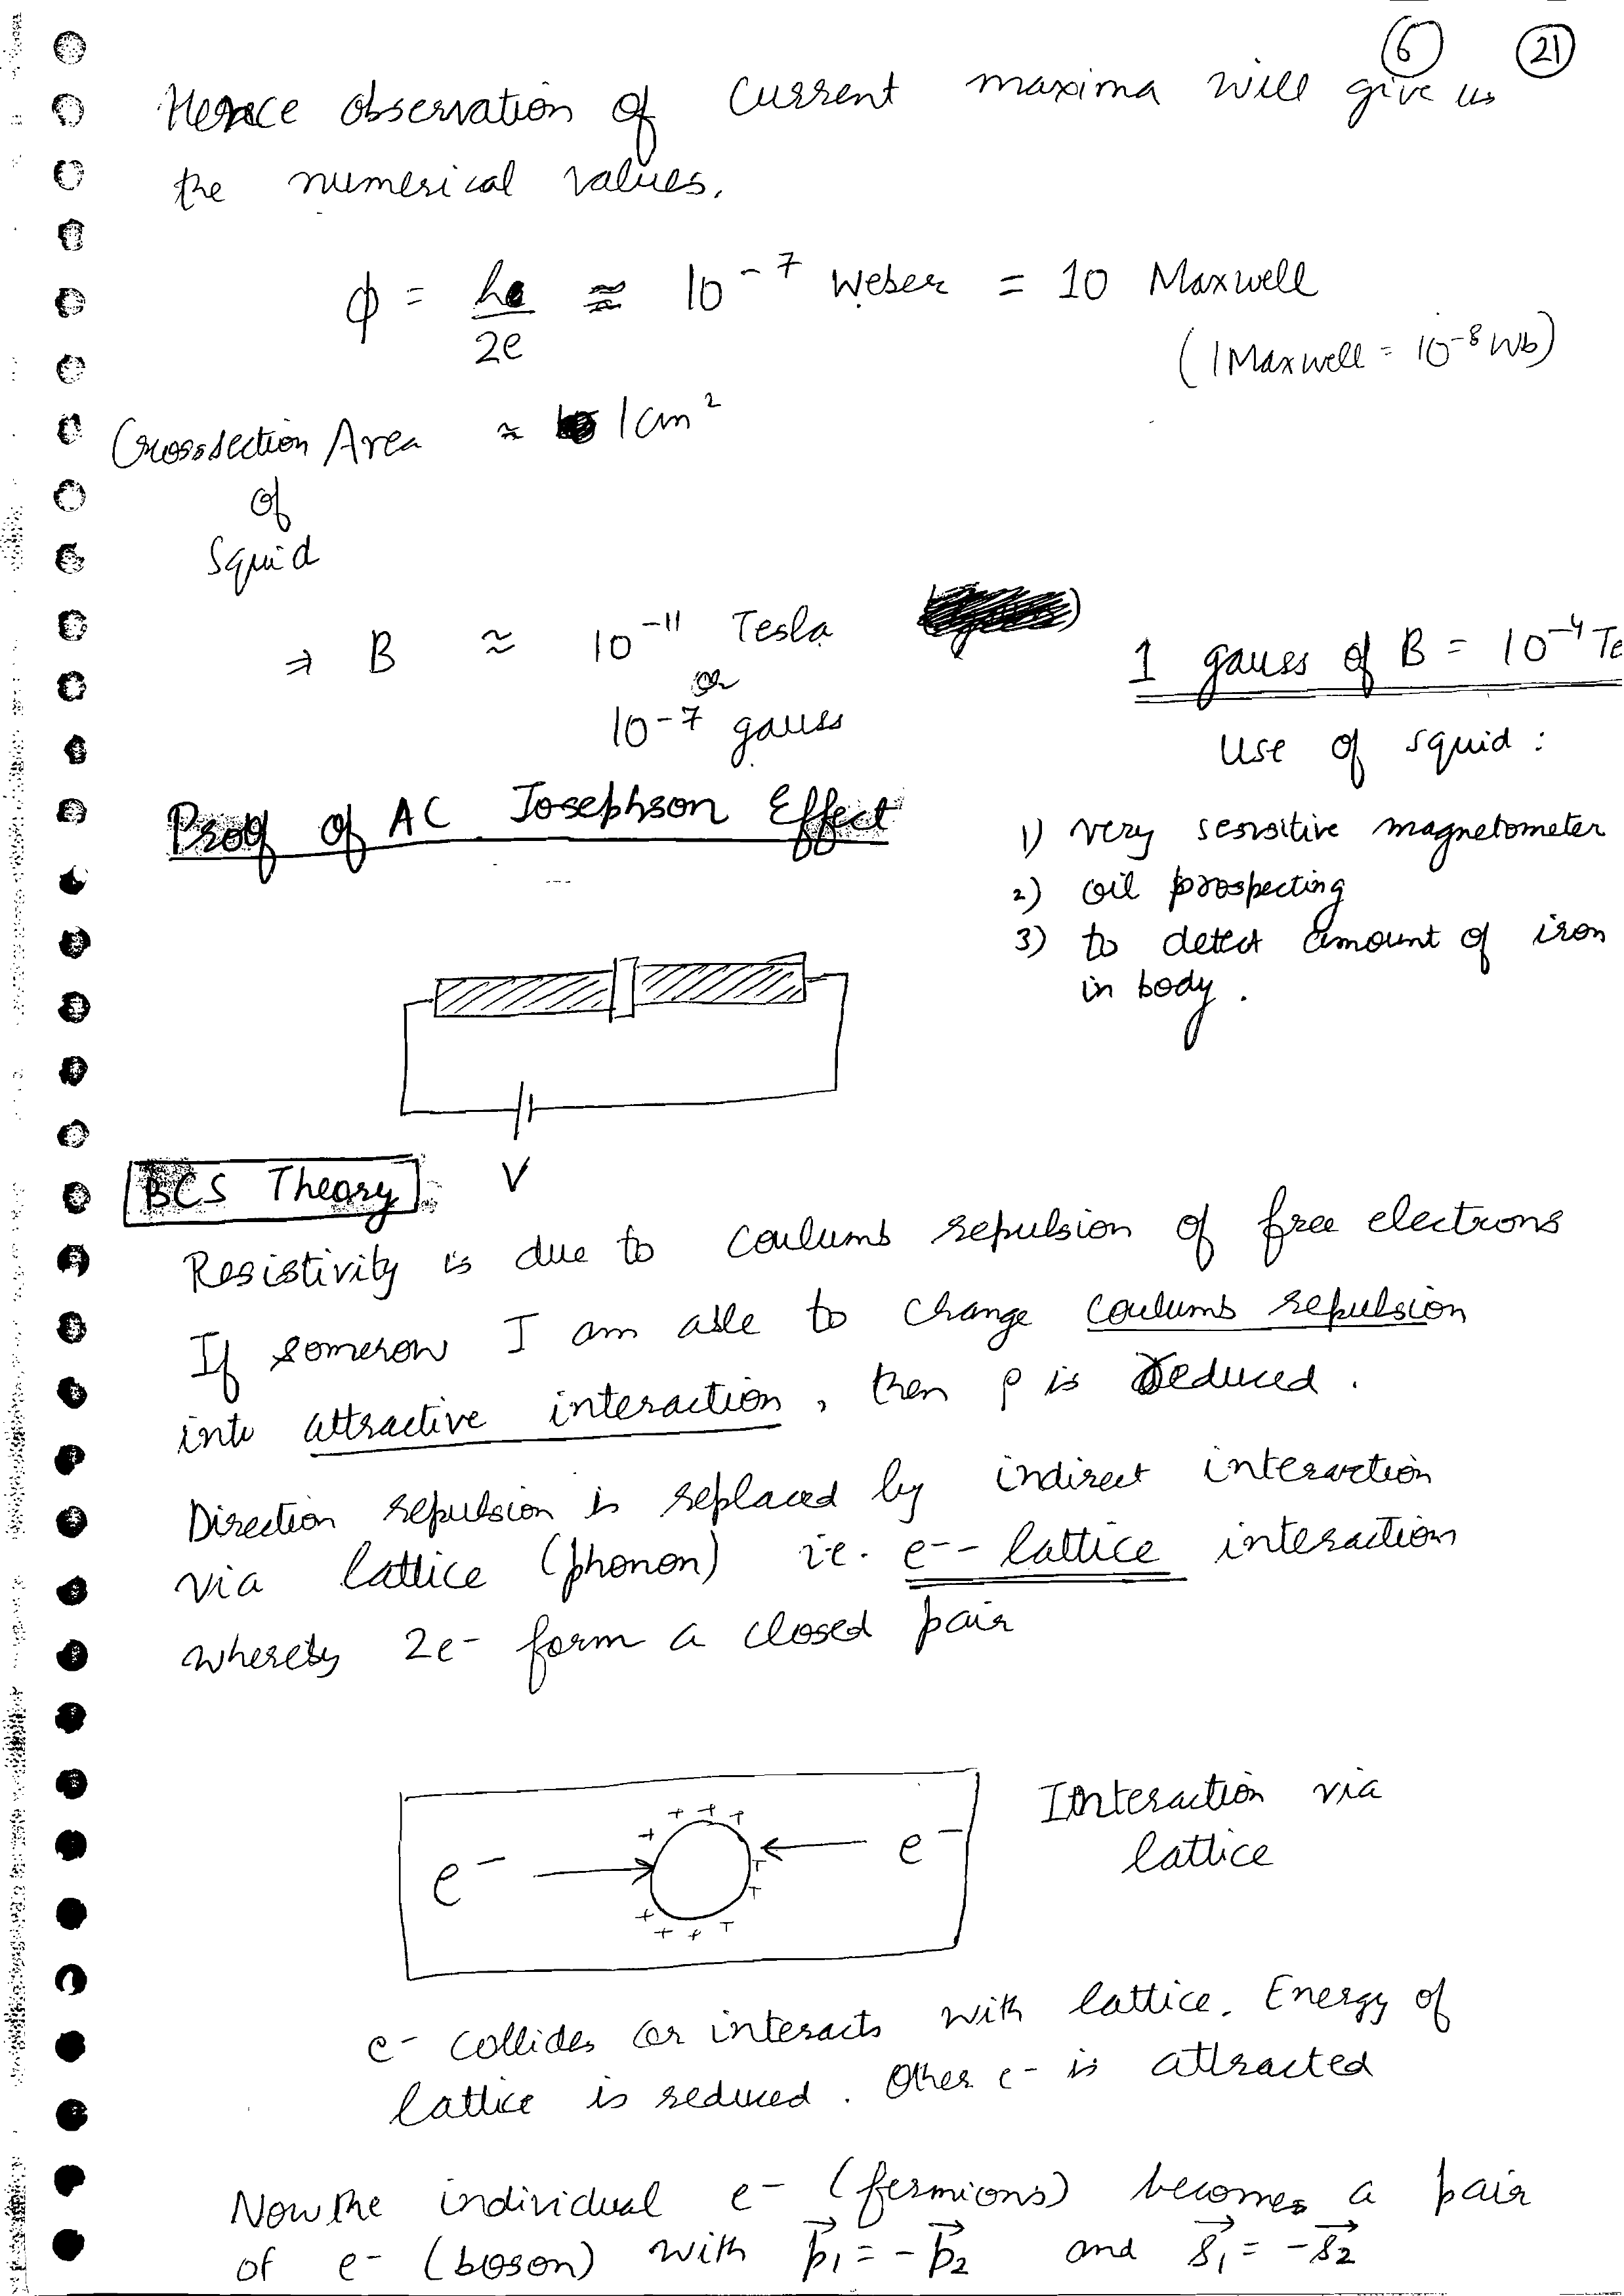 6 21
Hence observation of current maxima will give us
the numerical values.
ϕ = h/2e ≈ 10^-7 Weber = 10 Maxwell
(1 Maxwell = 10^-8 Wb)
Crosssection Area ≈ 1cm^2
of
Squid
⇒ B ≈ 10^-11 Tesla
or
10^-7 gauss
1 gauss of B = 10^-4 Te
Use of squid :
1) very sensitive magnetometer
2) oil prospecting
3) to detect amount of iron
in body.
Proof of AC Josephson Effect
V
BCS Theory
Resistivity is due to Coulumb repulsion of free electrons
If somehow I am able to change Coulumb repulsion
into attractive interaction, then ρ is reduced.
Direction repulsion is replaced by indirect interaction
via lattice (phonon) i.e. e- - lattice interaction
whereby 2e- form a closed pair
+ + + + + + + + + +
e- → ← e-
Interaction via
lattice
e- collides or interacts with lattice. Energy of
lattice is reduced. Other e- is attracted
Now the individual e- (fermions) becomes a pair
of e- (boson) with p⃗1 = -p⃗2 and s⃗1 = -s⃗2